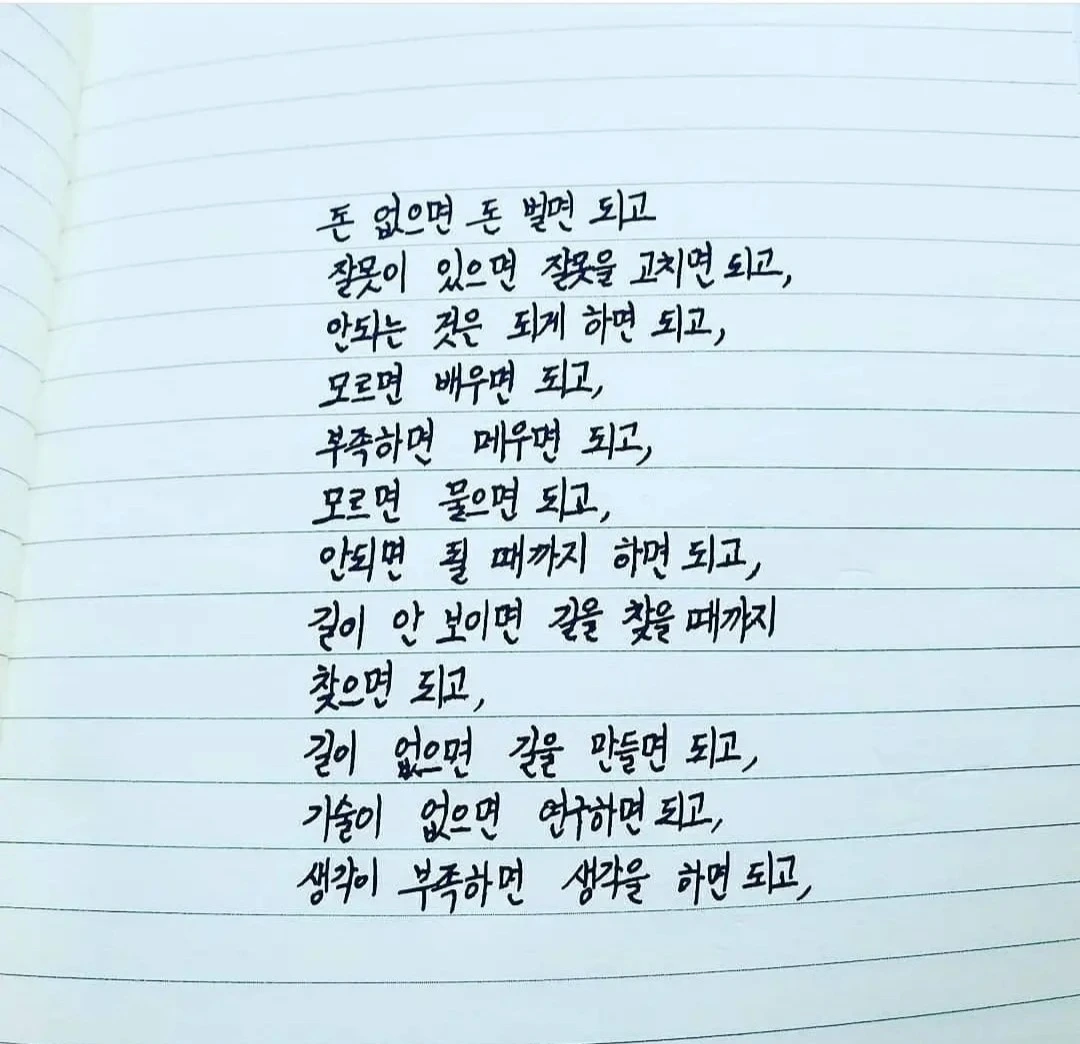 돈 없으면 돈 벌면 되고
잘못이 있으면 잘못을 고치면 되고,
안되는 것은 되게 하면 되고,
모르면 배우면 되고,
부족하면 메우면 되고,
모르면 물으면 되고,
안되면 될 때까지 하면 되고,
길이 안 보이면 길을 찾을 때까지
찾으면 되고,
길이 없으면 길을 만들면 되고,
기술이 없으면 연구하면 되고,
생각이 부족하면 생각을 하면 되고,